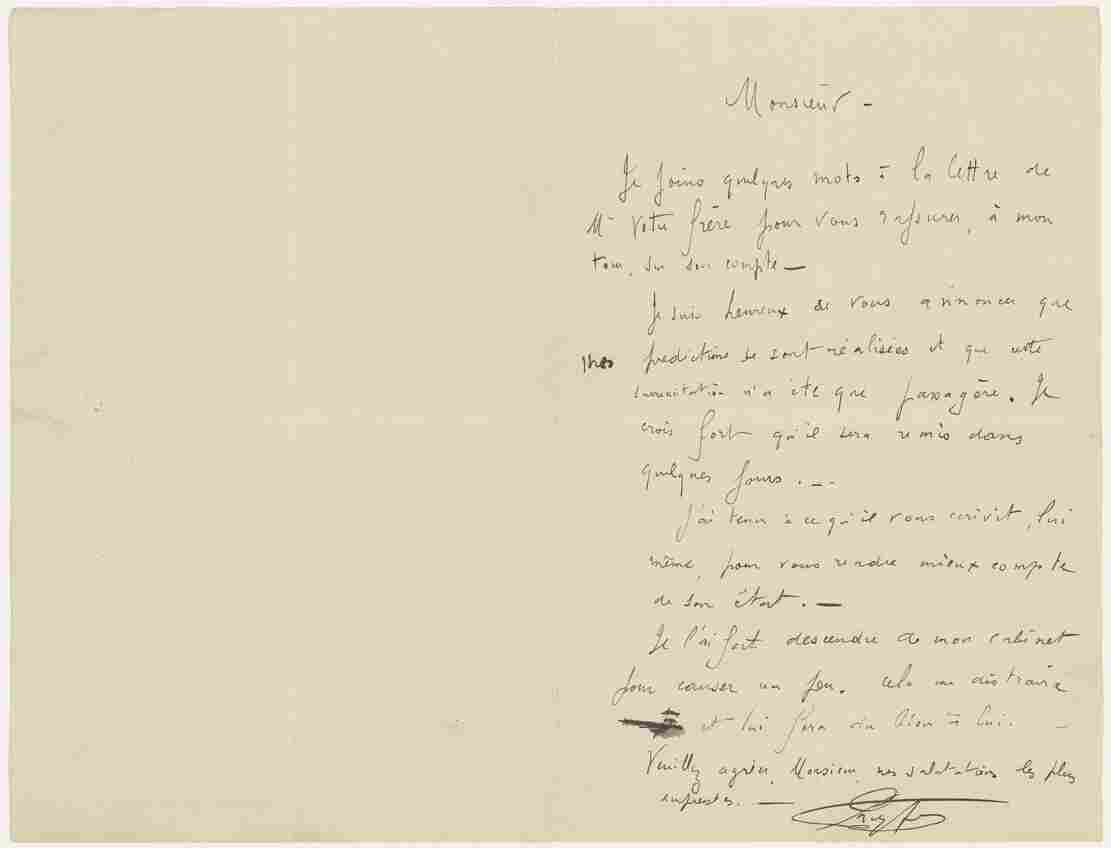 Monsieur -
Je joins quelques mots à la lettre de
Mr votre frère pour vous rassurer, à mon
tour, sur son compte —
Je suis heureux de vous annoncer que
mes prédictions se sont réalisées et que cette
surexcitation n'a été que passagère. Je
crois fort qu'il sera remis dans
quelques jours. —
J'ai tenu à ce qu'il vous écrivit, lui
même, pour vous rendre mieux compte
de son état. —
Je l'ai fait descendre de mon cabinet
pour causer un peu. cela me distraira
et lui fera du bien à lui. —
Veuillez agréer, Monsieur, mes salutations les plus
empressées. —